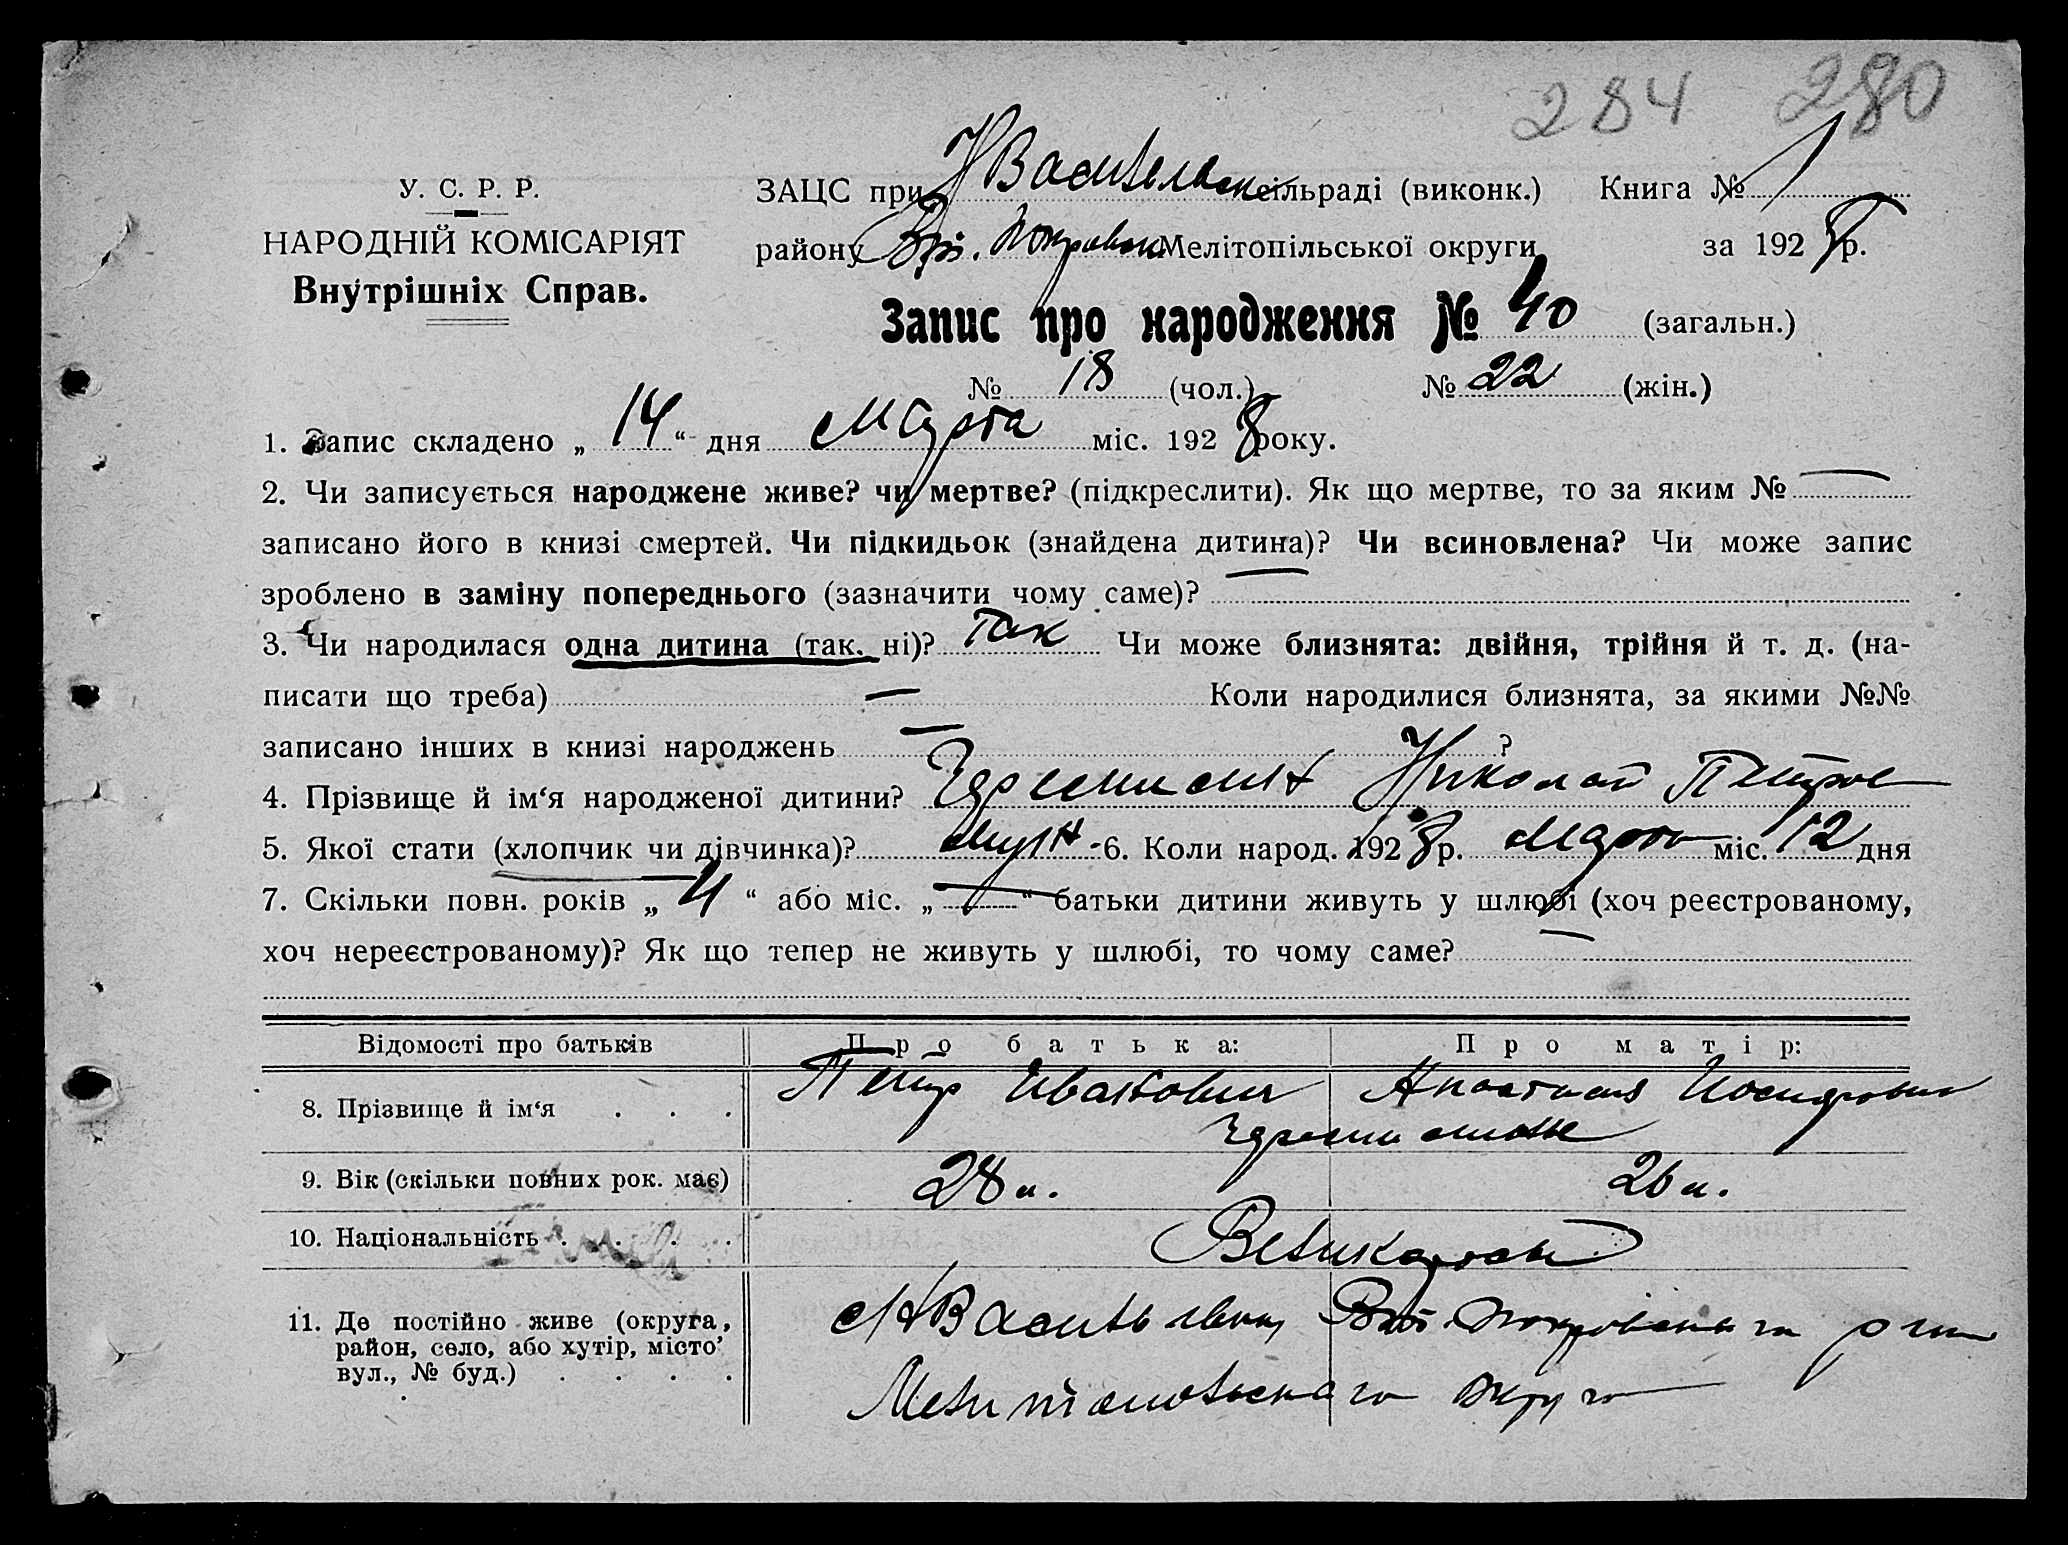 284 280
У. С. Р. Р.
НАРОДНІЙ КОМІСАРІЯТ
Внутрішніх Справ.
ЗАЦС при НВасильевск сільраді (виконк.) Книга № 1
району Вел. Покровск Мелітопільської округи за 192 8 р.
Запис про народження № 40 (загальн.)
№ 18 (чол.) № 22 (жін.)
1. Запис складено „ 14 “ дня Марта міс. 192 8 року.
2. Чи записується народжене живе? чи мертве? (підкреслити). Як що мертве, то за яким № —
записано його в книзі смертей. Чи підкидьок (знайдена дитина)? Чи всиновлена? Чи може запис
зроблено в заміну попереднього (зазначити чому саме)? —
3. Чи народилася одна дитина (так, ні)? Так Чи може близнята: двійня, трійня й т. д. (на-
писати що треба) — Коли народилися близнята, за якими №№
записано інших в книзі народжень — ?
4. Прізвище й ім‘я народженої дитини? Николай Петров
5. Якої стати (хлопчик чи дівчинка)? муж. 6. Коли народ. 192 8 р. Марта міс. 12 дня
7. Скільки повн. років „ 4 “ або міс. „ — “ батьки дитини живуть у шлюбі (хоч реєстрованому,
хоч нереєстрованому)? Як що тепер не живуть у шлюбі, то чому саме? —
Відомості про батьків Про батька: Про матір:
8. Прізвище й ім‘я . . . Петр Иванович Анастасия Иосифовна
9. Вік (скільки повних рок. має) 28 л. 26 л.
10. Національність . . . . Великоросы
11. Де постійно живе (округа,
район, село, або хутір, місто’
вул., № буд.) . . . .
НВасильевка Вел. Покровского р-на
Мелитопольского округа